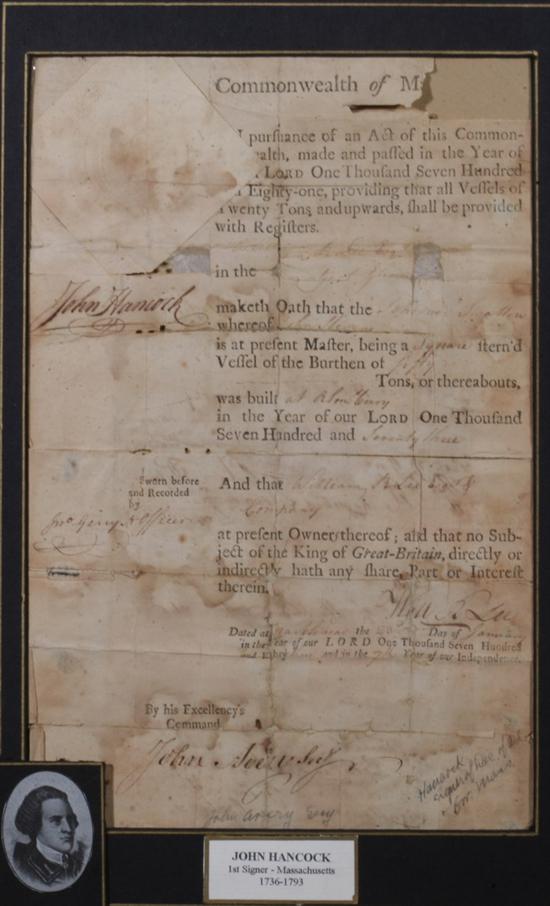 Commonwealth of M
pursuance of an Act of this Common-
alth, made and passed in the Year of
LORD One Thousand Seven Hundred
Eighty-one, providing that all Vessels of
wenty Tons, and upwards, shall be provided
with Registers.
in the
John Hancock
maketh Oath that the
whereof
is at present Master, being a square stern'd
Vessel of the Burthen of fifty
Tons, or thereabouts,
was built at
in the Year of our LORD One Thousand
Seven Hundred and Seventy three
Sworn before
and Recorded
by
And that William R Lee Esqr &
Company
at present Owner thereof; and that no Sub-
ject of the King of Great-Britain, directly or
indirectly hath any share, Part or Interest
therein.
Willm R Lee
Dated at the Day of January
in the Year of our LORD One Thousand Seven Hundred
and Eighty and in the 7th Year of our Independence.
By his Excellency's
Command
John Avery Secy
John Avery Secy
Hancock
signer of Dec. of Ind.
Gov. Mass.
JOHN HANCOCK
1st Signer - Massachusetts
1736-1793